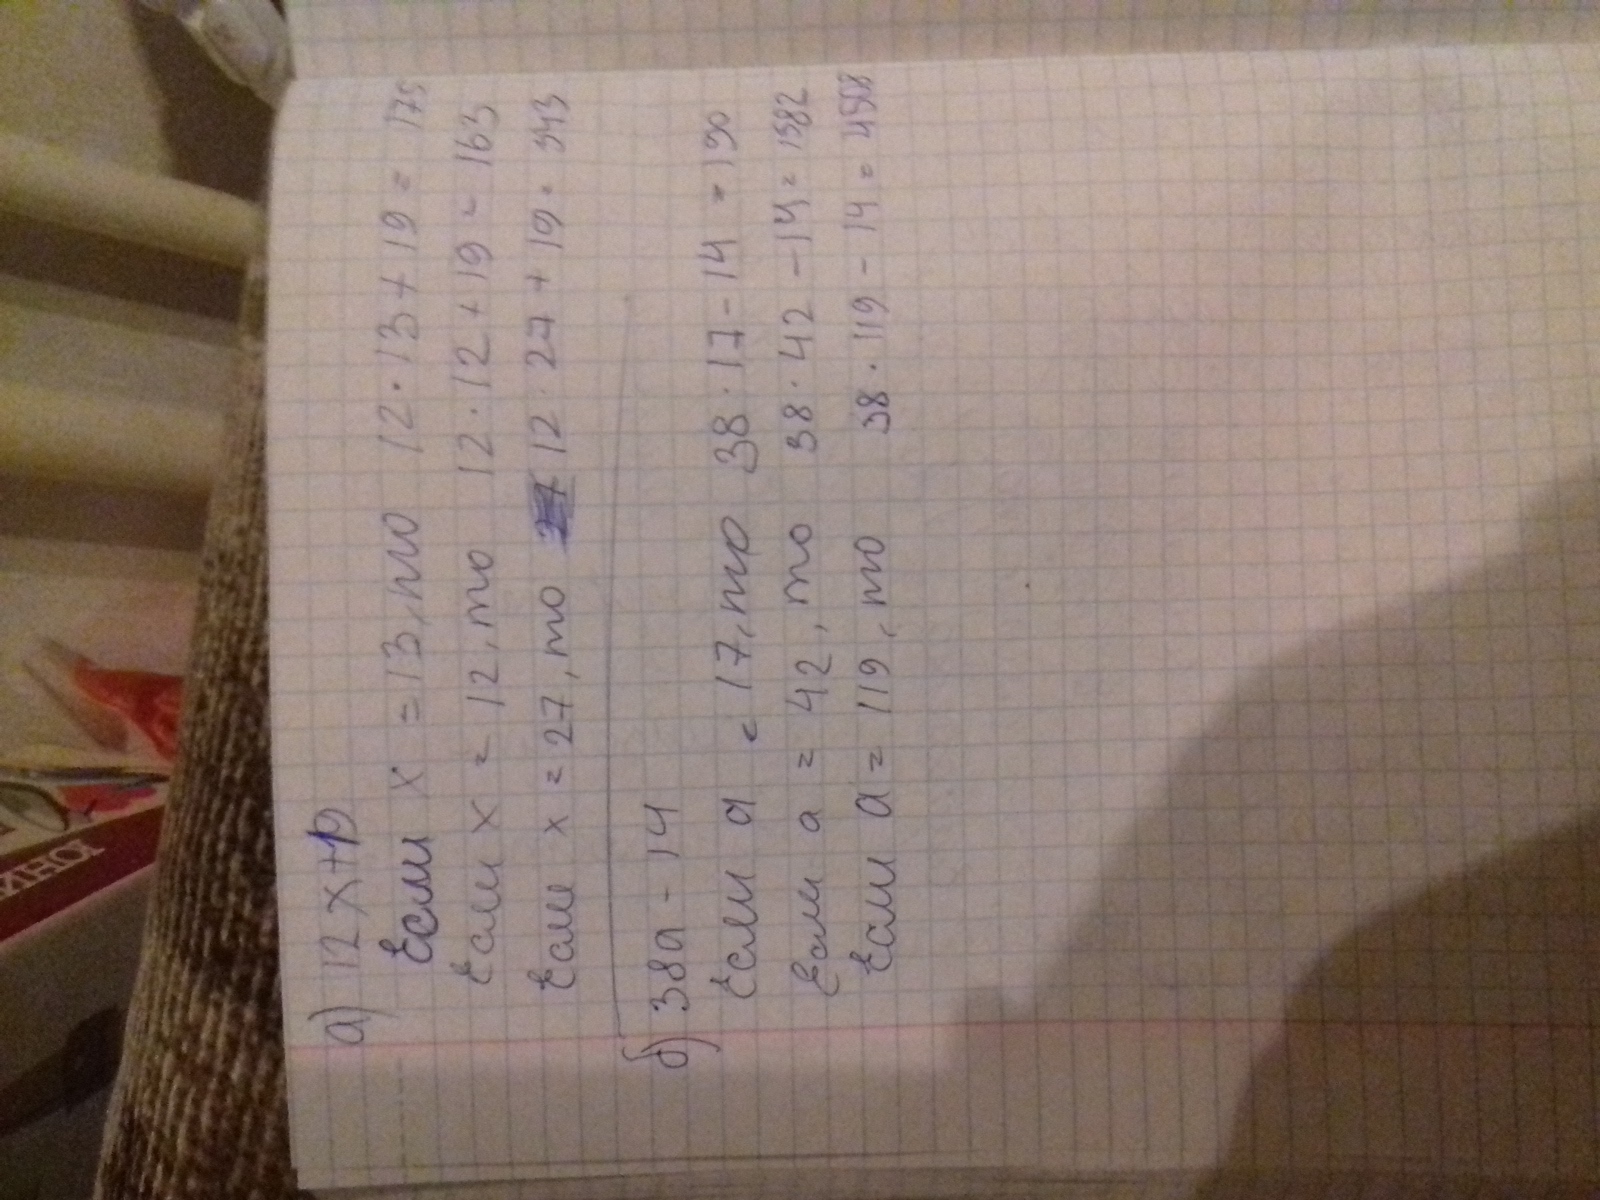 а) 12x+19
Если x = 13, то 12 · 13 + 19 = 175
Если x = 12, то 12 · 12 + 19 = 163
Если x = 27, то 12 · 27 + 19 = 343
б) 38a - 14
Если a = 17, то 38 · 17 - 14 = 190
Если a = 42, то 38 · 42 - 14 = 1582
Если a = 119, то 38 · 119 - 14 = 4508
ЮНИ